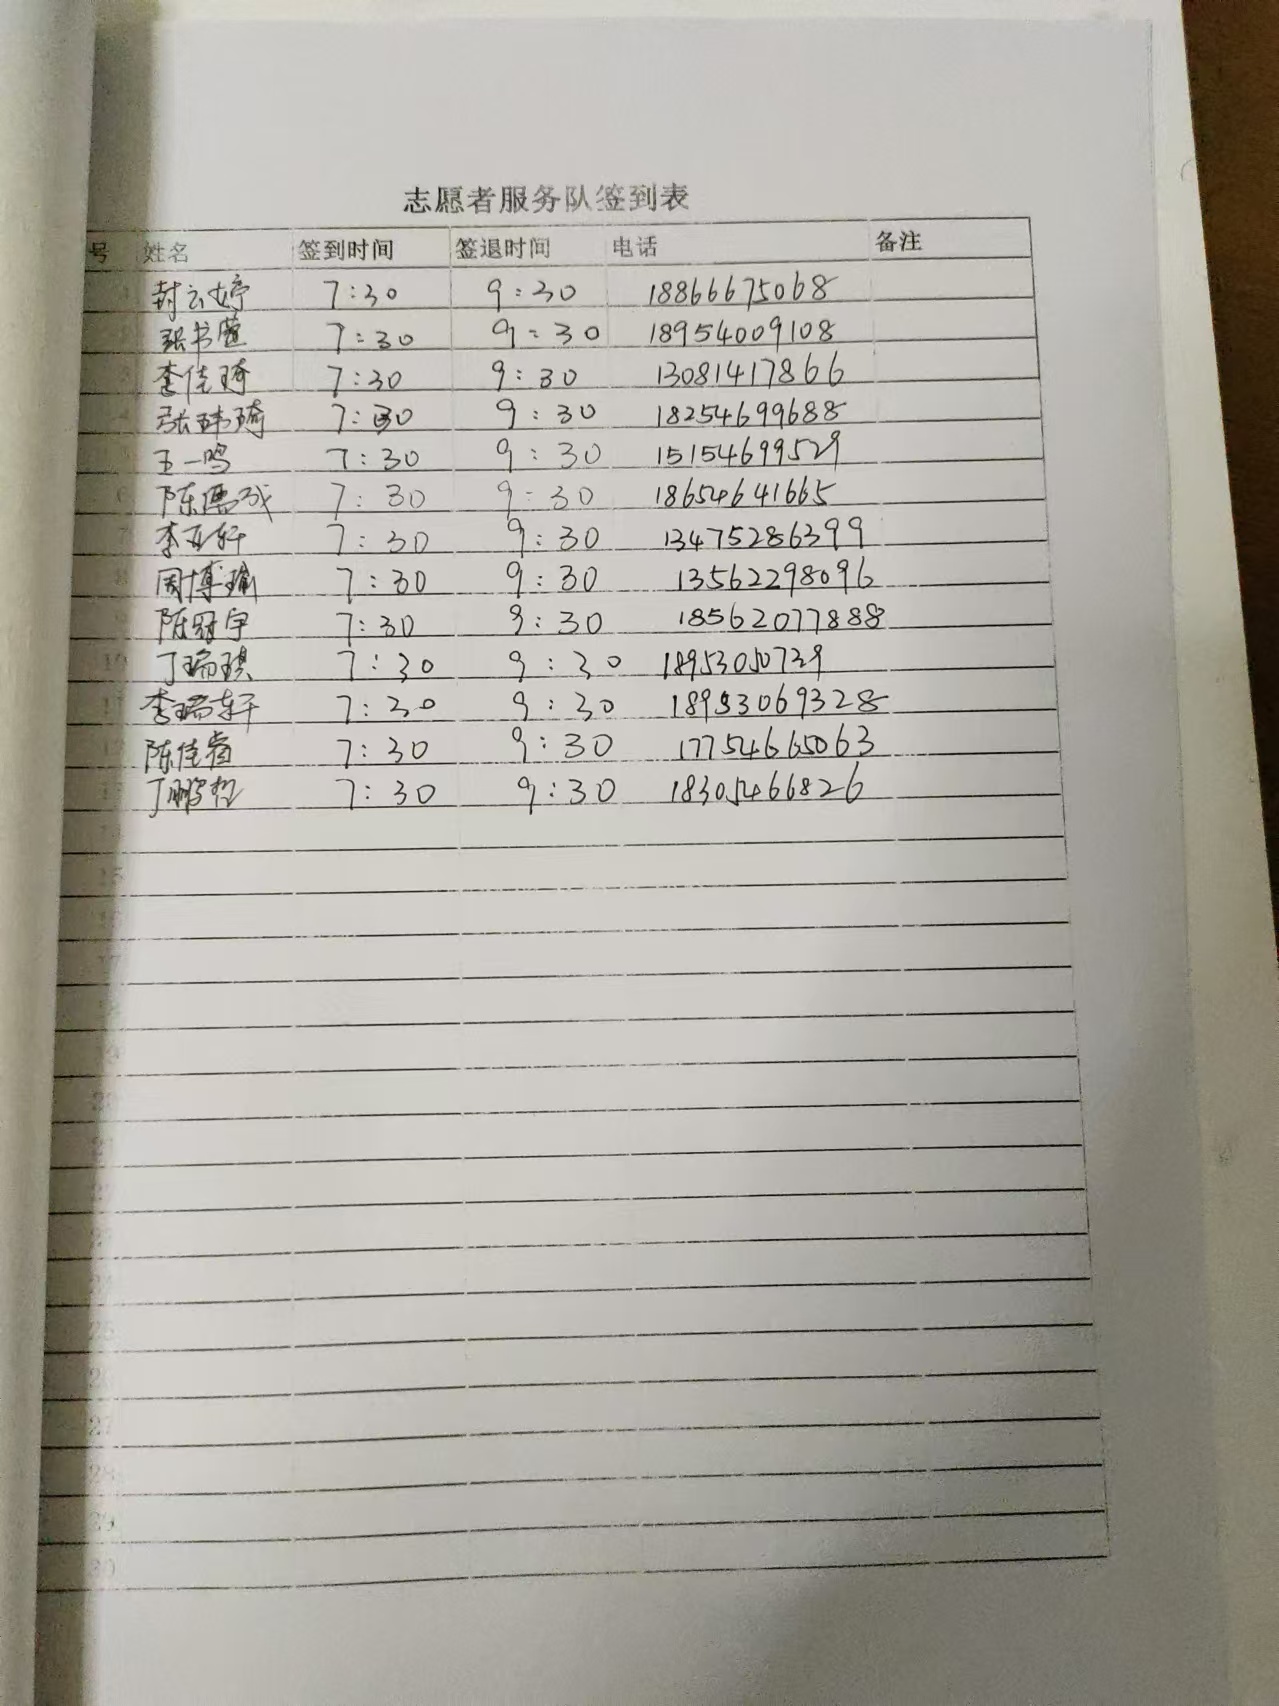 志愿者服务队签到表
号 姓名 签到时间 签退时间 电话 备注
1 封云婷 7:30 9:30 18866675068
2 张书萱 7:30 9:30 18954009108
3 李佳琦 7:30 9:30 13081417866
4 张玮琦 7:30 9:30 18254699688
5 王一鸣 7:30 9:30 15154699529
6 7:30 9:30 18654641665
7 李亚轩 7:30 9:30 13475286399
8 周博瑜 7:30 9:30 13562298096
9 陈冠宇 7:30 9:30 18562077888
10 丁瑞琪 7:30 9:30 18953050739
11 李瑞轩 7:30 9:30 18953069328
12 陈佳睿 7:30 9:30 17754665063
13 丁鹏程 7:30 9:30 18305466826
14
15
16
17
18
19
20
21
22
23
24
25
26
27
28
29
30